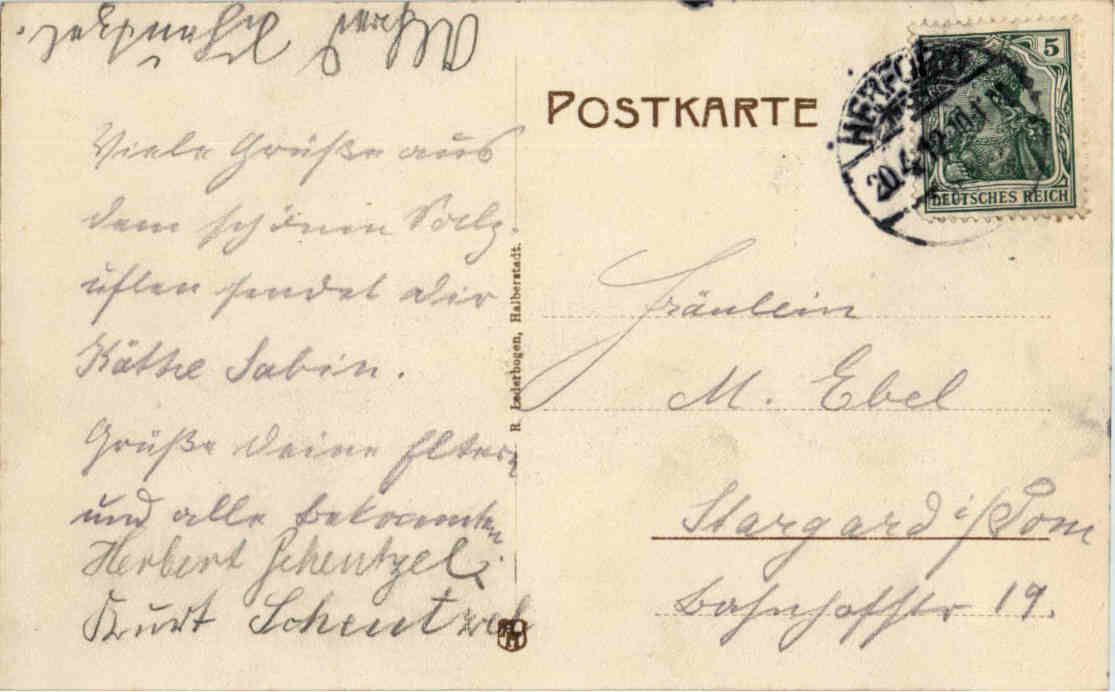 POSTKARTE
5
DEUTSCHES REICH
HERFORD
20.4.12
Viele Grüße aus
dem schönen Salz-
uflen sendet dir
Käthe Sabin.
Grüße deine Eltern
und alle Bekannten
Herbert Schentzel.
Kurt Schentzel
R. Lederbogen, Halberstadt.
Fräulein
M. Ebel
Stargard i/Pom
Bahnhofstr 19.